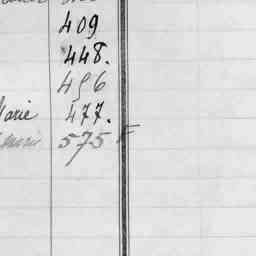 409
448.
456
Marie 477.
575 F